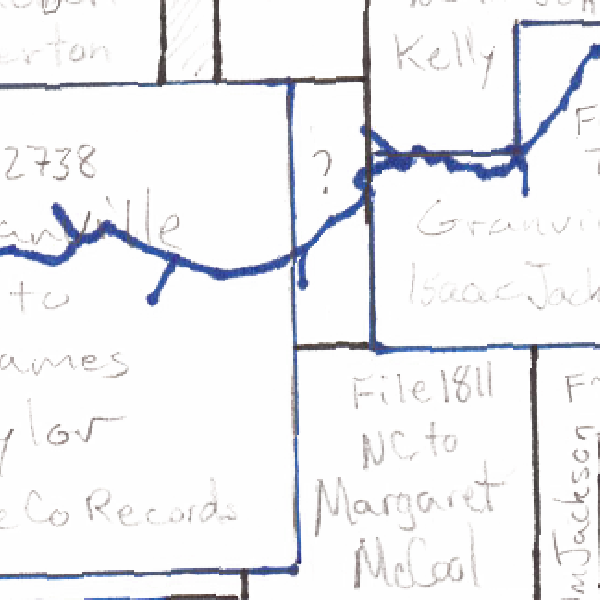 erton
Kelly
2738
?
anville
to
ames
ylor
e Co Records
Granvi
Isaac Jack
File 1811
NC to
Margaret
McCool
F
mJackson